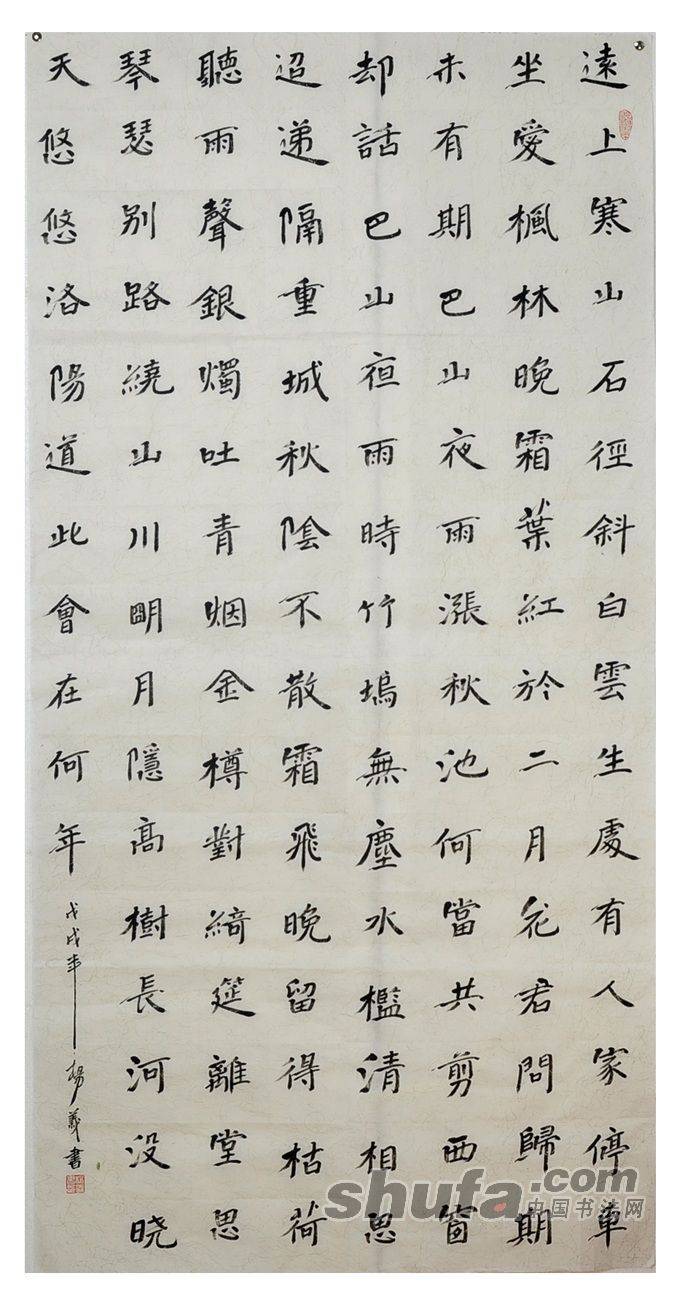 遠上寒山石徑斜白雲生處有人家停車
坐愛楓林晚霜葉紅於二月花君問歸期
未有期巴山夜雨漲秋池何當共剪西窗
却話巴山夜雨時竹塢無塵水檻清相思
迢递隔重城秋陰不散霜飛晚留得枯荷
聽雨聲銀燭吐青烟金樽對綺筵離堂思
琴瑟别路繞山川眀月隱高樹長河没晓
天悠悠洛陽道此會在何年
戊戌年楊義書
shufa.com
中国书法网